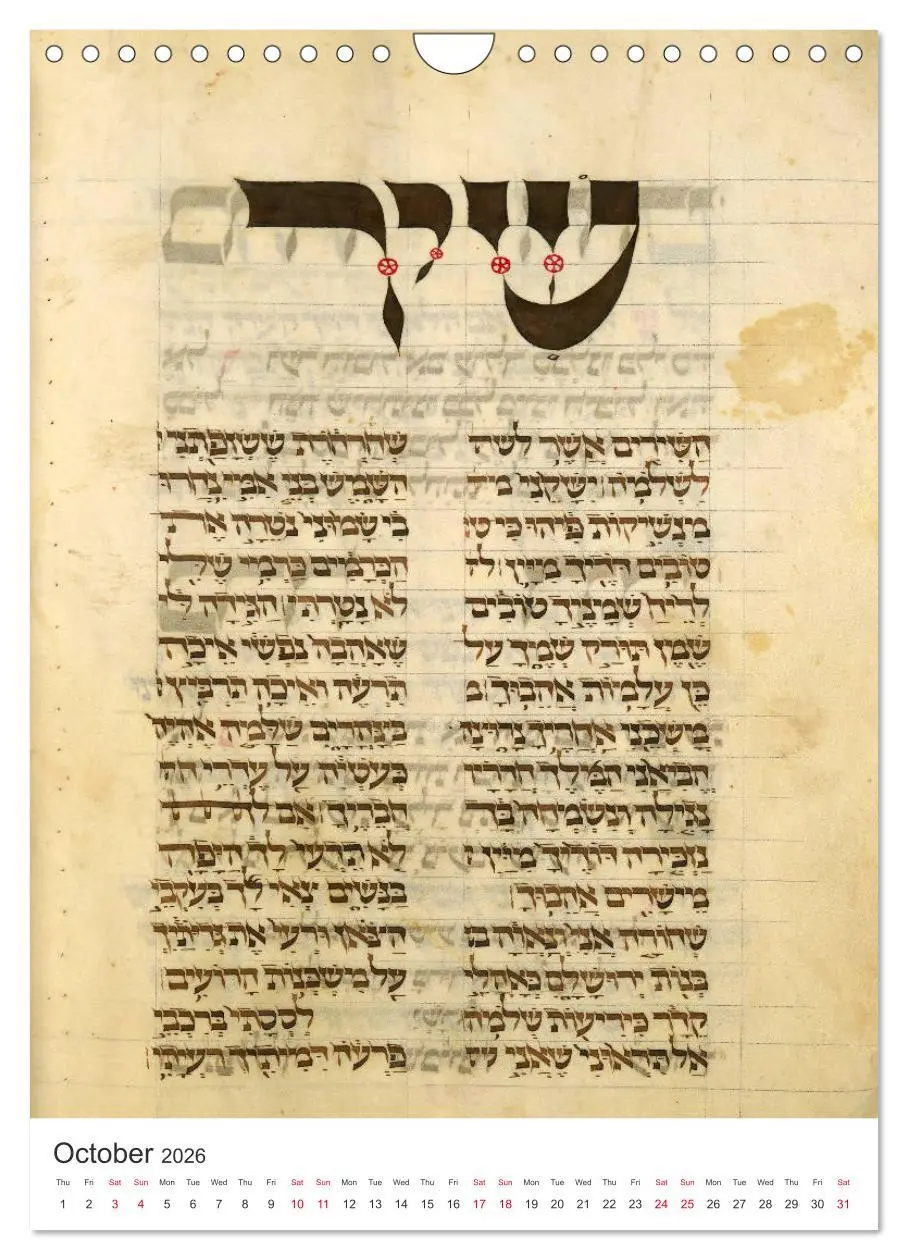 שיר
השירים אשר
לשלמה ישקני
מנשיקות פיהו כי
טובים דדיך מיין
לריח שמניך טובים
שמן תורק שמך על
כן עלמות אהבוך
משכני אחריך נרוצה
הביאני המלך חדריו
נגילה ונשמחה בך
נזכירה דדיך מיין
מישרים אהבוך
שחורה אני ונאוה
בנות ירושלם כאהלי
קדר כיריעות שלמה
אל תראוני שאני
שחרחרת ששזפתני
השמש בני אמי נחרו
בי שמוני נטרה את
הכרמים כרמי שלי
לא נטרתי הגידה לי
שאהבה נפשי איכה
תרעה ואיכה תרביץ
בצהרים שלמה אהיה
כעטיה על עדרי
חבריך אם
לא תדעי לך היפה
בנשים צאי לך בעקבי
הצאן ורעי את גדיתיך
על משכנות הרועים
לססתי ברכבי
פרעה דמיתיך רעיתי
October 2026
Thu Fri Sat Sun Mon Tue Wed Thu Fri Sat Sun Mon Tue Wed Thu Fri Sat Sun Mon Tue Wed Thu Fri Sat Sun Mon Tue Wed Thu Fri Sat
1 2 3 4 5 6 7 8 9 10 11 12 13 14 15 16 17 18 19 20 21 22 23 24 25 26 27 28 29 30 31